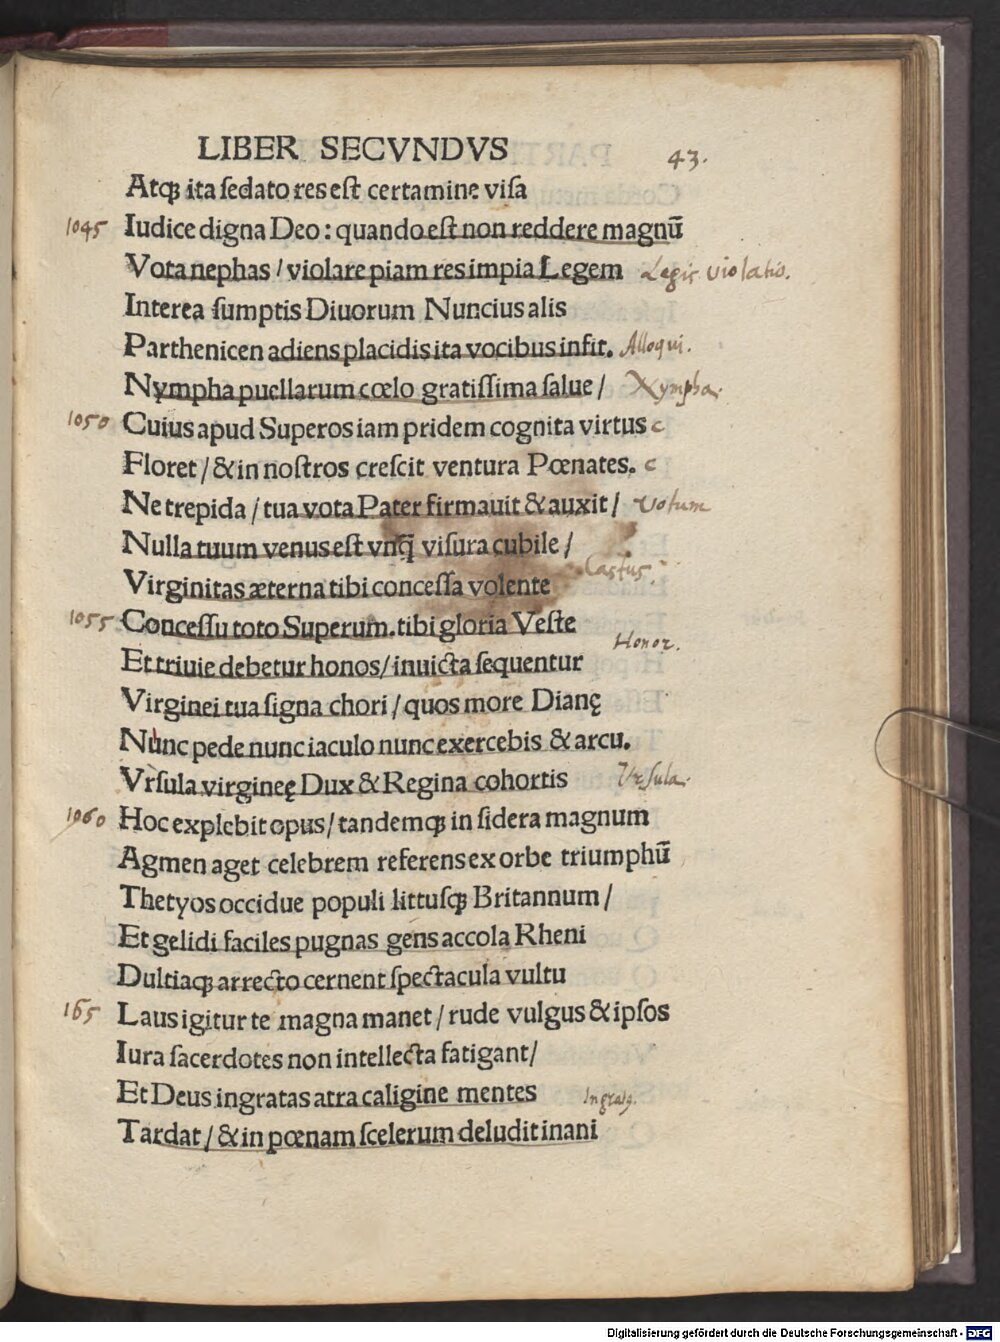 LIBER SECVNDVS 43.
Atqꝫ ita ſedato res eſt certamine viſa
1045 Iudice digna Deo : quando eſt non reddere magnū
Vota nephas / violare piam res impia Legem Legis violatio.
Interea ſumptis Diuorum Nuncius alis
Parthenicen adiens placidis ita vocibus infit. Alloqui.
Nympha puellarum cœlo gratiſſima ſalue / Nympha.
1050 Cuius apud Superos iam pridem cognita virtus c
Floret / & in noſtros creſcit ventura Pœnates. c
Ne trepida / tua vota Pater firmauit & auxit / Votum
Nulla tuum venus eſt vnq̄ viſura cubile /
Castus.
Virginitas æterna tibi conceſſa volente
1055 Conceſſu toto Superum. tibi gloria Veſte
Honor.
Et triuie debetur honos / inuicta ſequentur
Virginei tua ſigna chori / quos more Dianę
Nunc pede nunc iaculo nunc exercebis & arcu.
Vrſula virgineę Dux & Regina cohortis Vrsula.
1060 Hoc explebit opus / tandemqꝫ in ſidera magnum
Agmen aget celebrem referens ex orbe triumphū
Thetyos occidue populi littuſqꝫ Britannum /
Et gelidi faciles pugnas gens accola Rheni
Dultiaqꝫ arrecto cernent ſpectacula vultu
165 Laus igitur te magna manet / rude vulgus & ipſos
Iura ſacerdotes non intellecta fatigant /
Et Deus ingratas atra caligine mentes
Tardat / & in pœnam ſcelerum deludit inani
Digitalisierung gefördert durch die Deutsche Forschungsgemeinschaft - DFG